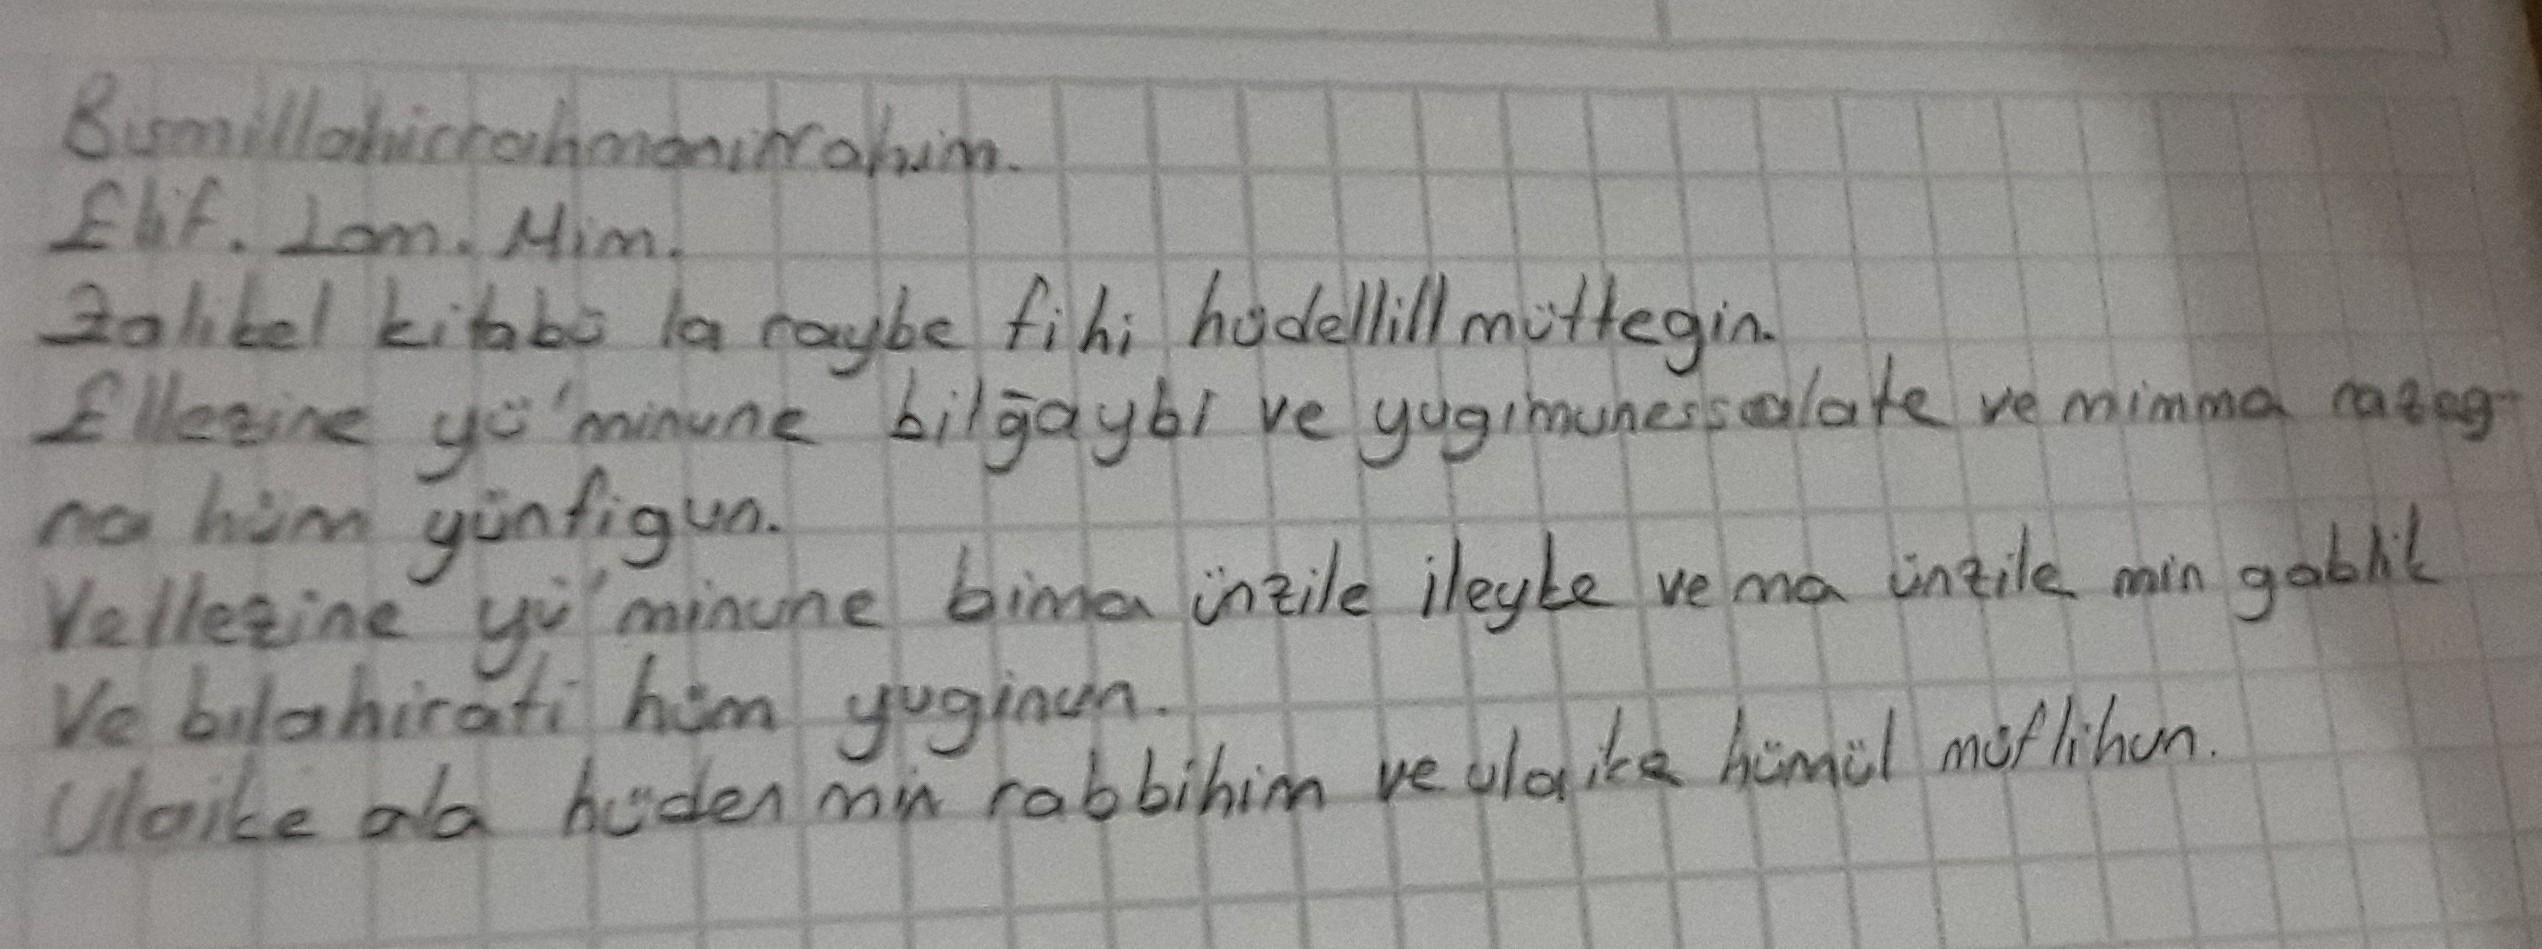 Bismillahirrahmanirrahim.
Elif. Lam. Mim.
Zalikel kitabü la raybe fihi hüdellill müttegin.
Ellezine yü'minune bilğaybı ve yugımunessalate ve mimma razag-
na hüm yünfigun.
Vellezine yü'minune bima ünzile ileyke ve ma ünzile min gablik
Ve bilahirati hüm yuginun.
Ulaike ala hüden min rabbihim ve ulaike hümül müflihun.